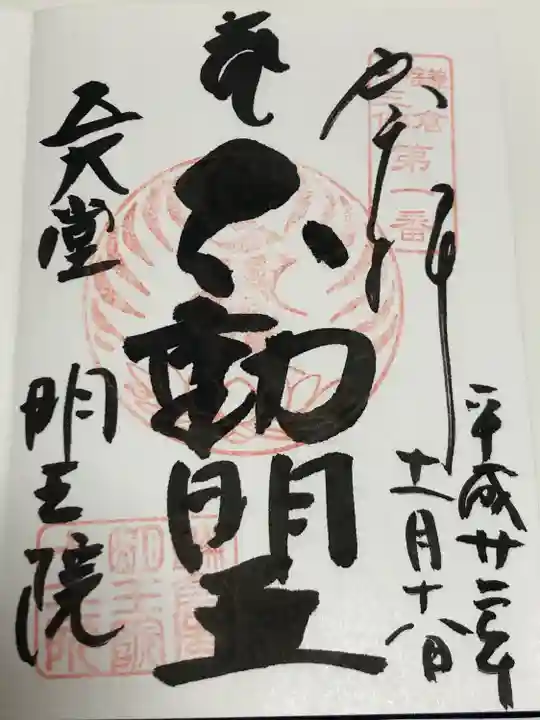 鎌倉十三佛
第一番
奉拝
平成廿二年
十一月十八日
不動明王
五大堂
明王院